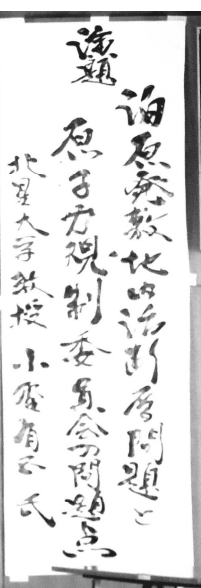 演題
泊原発敷地内活断層問題と
原子力規制委員会の問題点
北星大学教授 小野有五 氏